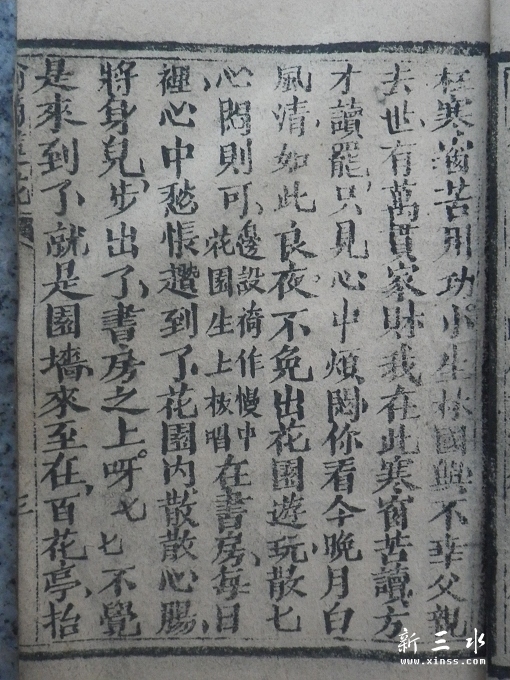 寒窗苦用功小生林國興不幸父親
去世有萬貫家財我在此寒窗苦讀方
才讀罷只見心中煩悶你看今晚月白
風清如此良夜不免出花園遊玩散七
心悶則可
邊設倚作慢中
花園生上板唱
在書房每日
裡心中愁悵到了花園內散散心腸
將身兒步出了書房之上呀七七不覺
是來到了就是園墻來至在百花亭抬
三
新三水
www.xinss.com